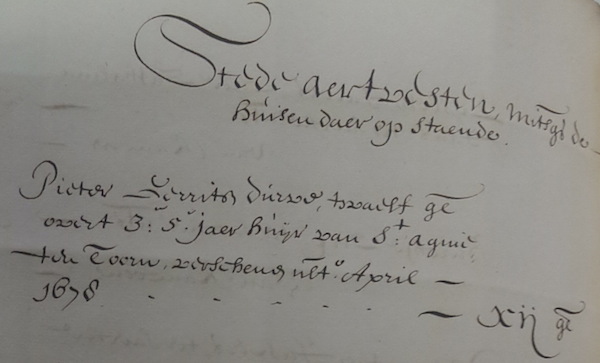 Stede aertvesten, mitsgrs de
huisen daer op staende.
Pieter Gerritsz twaelf gl
over 3: 5: jaer huijr van St: agnie
ten Toorn, verschenen ult.o April —
1678 - - - - - — XIJ gl